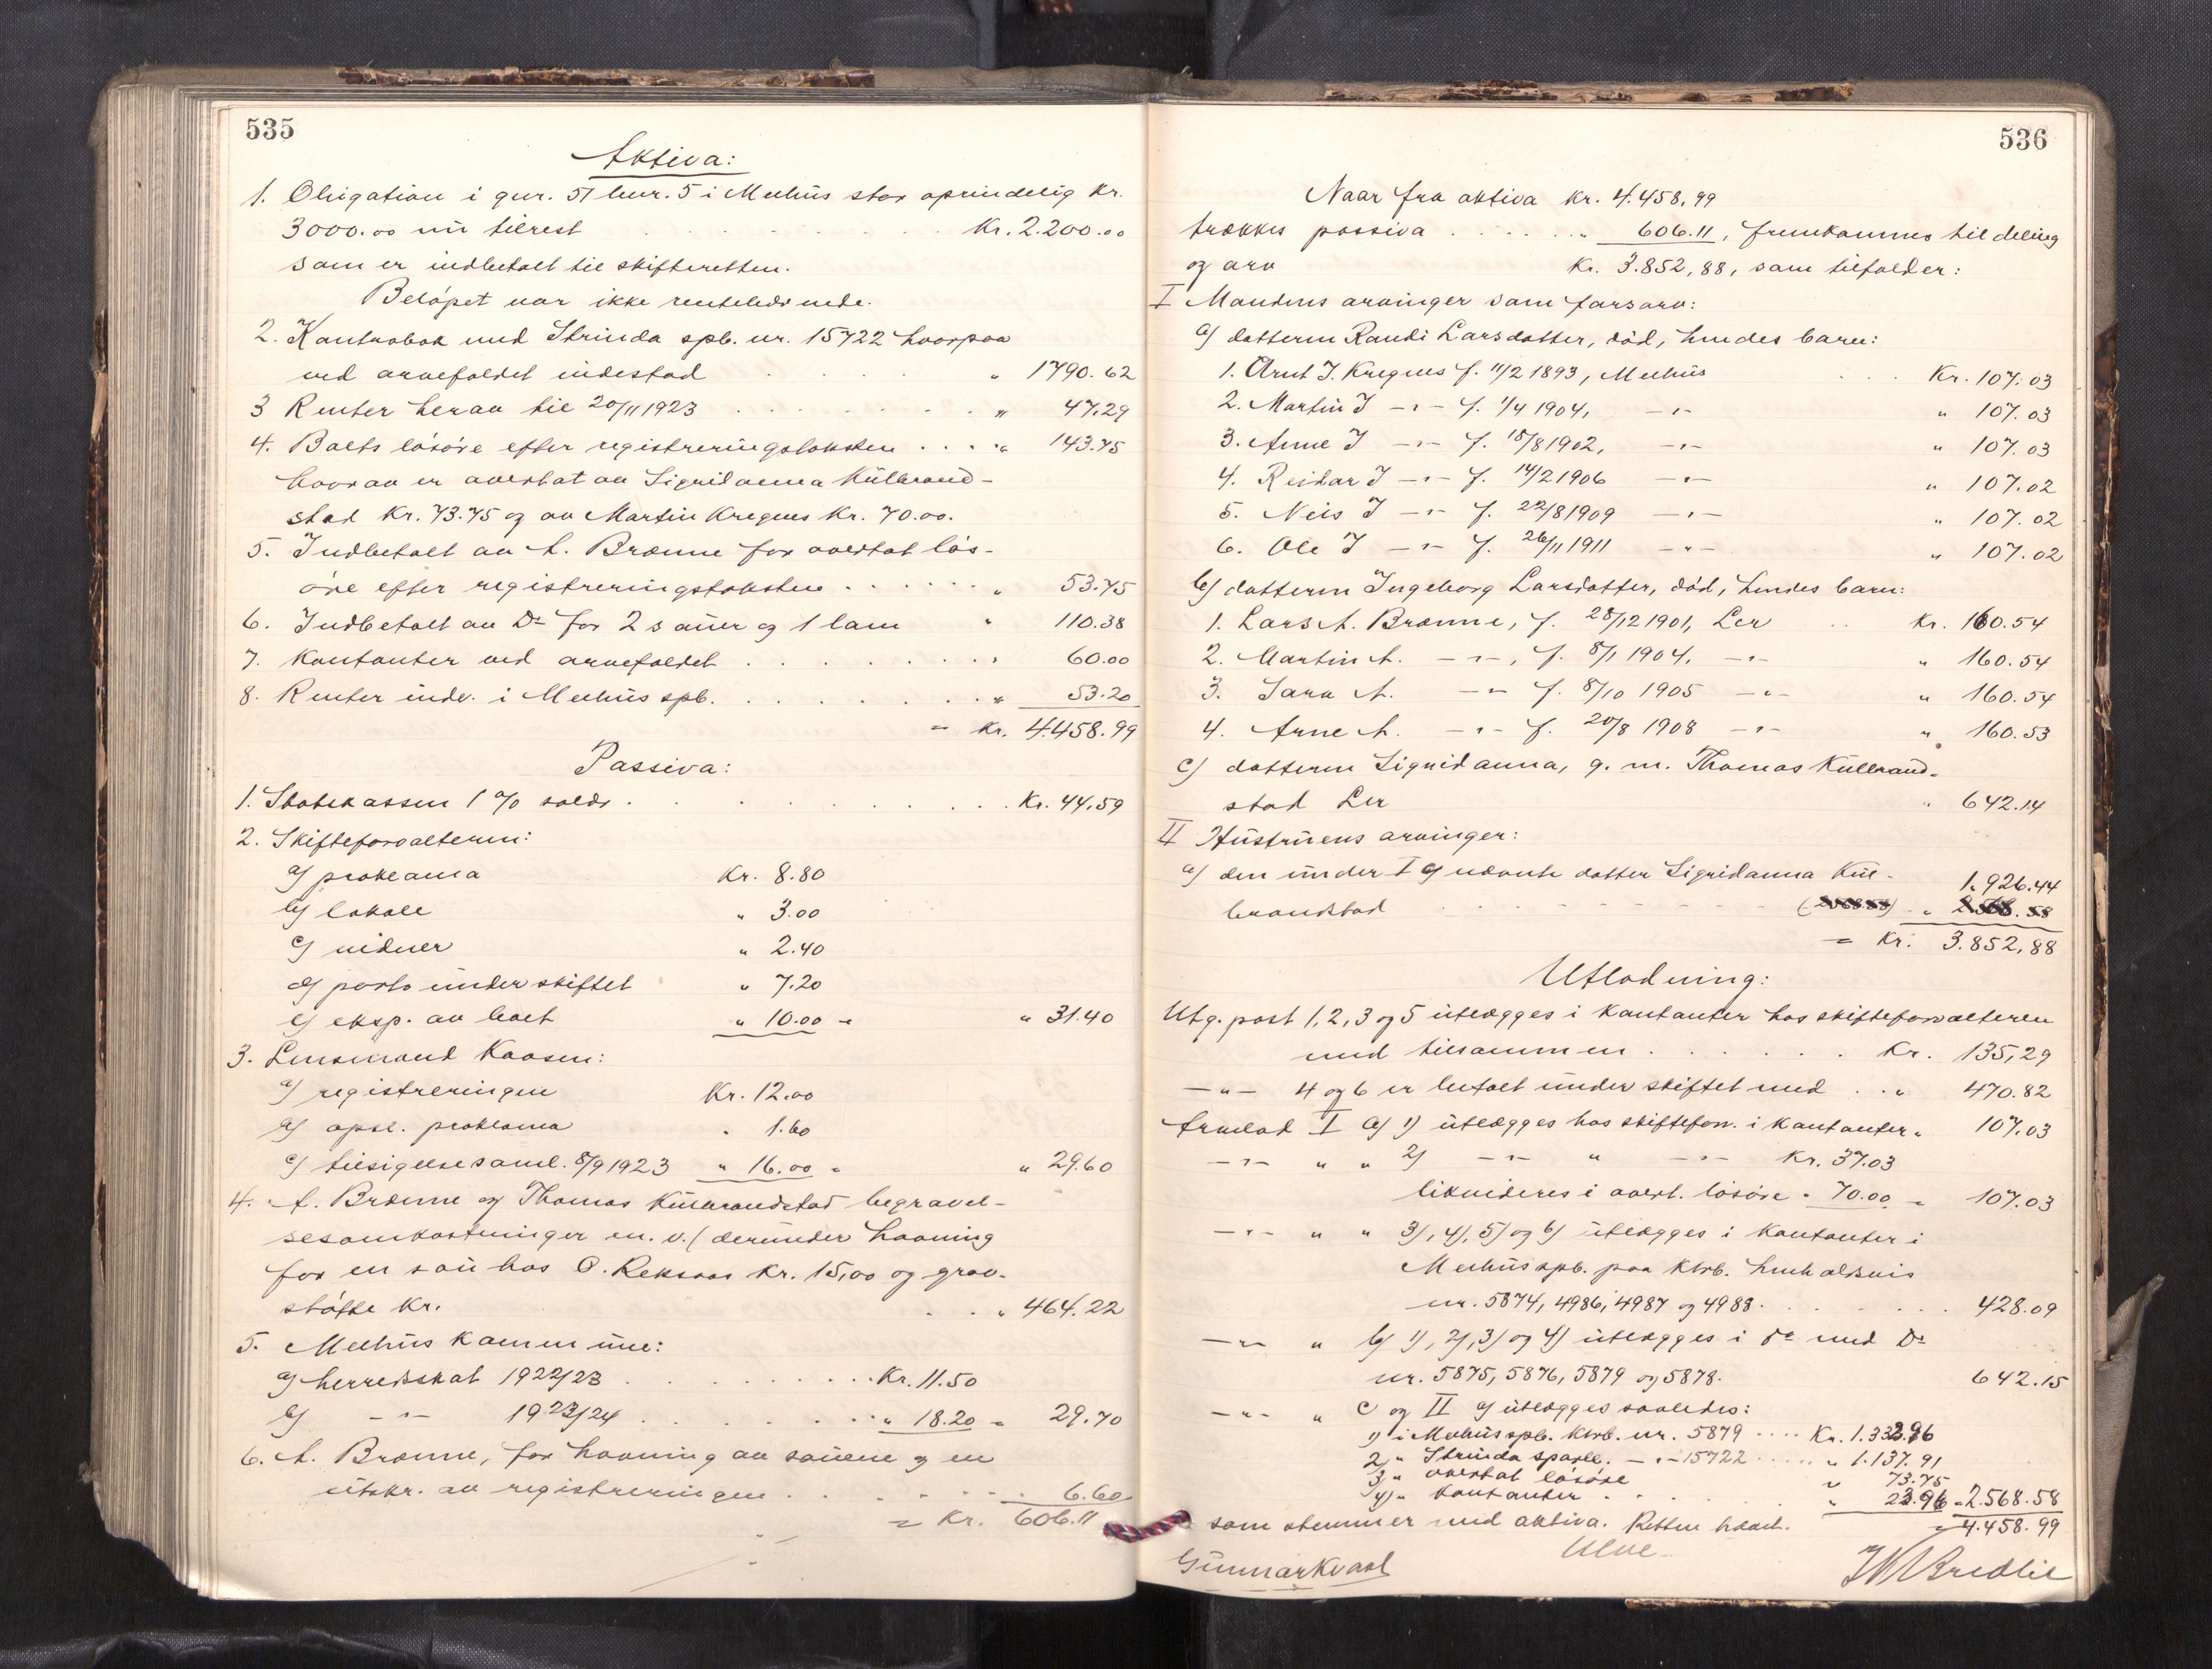 535
Aktiva:
1. Obligation i gnr. 51 bnr. 5 i Melhus stor oprindelig kr.
3000.00 nu tilrest . . . . . Kr. 2.200.00
som er indbetalt til skifteretten.
Beløpet var ikke rentebærende.
2. Kontrabok med Strinda spb. nr. 15722 hvorpaa
ved arvefaldet indestod . . . . " 1790.62
3 Renter herav til 20/11 1923 . . . . " 47.29
4. Boets løsøre efter registreringstaksten . . . . " 143.75
hvorav er overtat av Sigridanna Kulbrand-
stad kr. 73.75 og av Martin Kregnes kr. 70.00.
5. Indbetalt av A. Brønne for overtat løs-
øre efter registreringstaksten . . . . " 53.75
6. Indbetalt av Do for 2 sauer og 1 lam " 110.38
7. Kontanter ved arvefaldet . . . . " 60.00
8. Renter indv. i Melhus spb. . . . . " 53.20
= kr. 4.458.99
Passiva:
1. Statskassen 1 % . . . . Kr. 44.59
2. Skifteforvalteren:
a) proklama Kr. 8.80
b) lokale " 3.00
c) vidner " 2.40
d) porto under skiftet " 7.20
e) eksp. av boet " 10.00 = " 31.40
3. Lensmand Kaasen:
a) registreringen Kr. 12.00
b) opsl. proklama " 1.60
c) tilsigelse saml. 8/9 1923 " 16.00 = " 29.60
4. A. Brønne og Thomas Kulbrandstad begravel-
sesomkostninger m. v. (derunder havning
for en sau hos O. Reksaas kr. 15,00 og grav-
støtte kr. . . . " 464.22
5. Melhus kommune:
a) herredskat 1922/23 . . . . Kr. 11.50
b) -"- 1923/24 . . . . " 18.20 = 29.70
6. A. Brønne, for havning av sauene og en
utskr. av registreringen . . . . 6.60
= Kr. 606.11
536
Naar fra aktiva kr. 4.458,99
trækkes passiva . . . . " 606.11, fremkommer til deling
og arv Kr. 3.852,88, som tilfalder:
I Mandens arvinger som farsarv:
a) datteren Randi Larsdatter, død, hendes barn:
1. Arnt J. Kregnes f. 11/2 1893, Melhus . . . Kr. 107.03
2. Martin J -"- f. 1/4 1904, -"- " 107.03
3. Anne J -"- f. 18/8 1902, -"- " 107.03
4. Reidar J -"- f. 14/2 1906 -"- " 107.02
5. Neis J -"- f. 22/8 1909 -"- " 107.02
6. Ole J -"- f. 26/11 1911 -"- " 107.02
b) datteren Ingeborg Larsdatter, død, hendes barn:
1. Lars A. Brønne, f. 28/12 1901, Ler . . Kr. 160.54
2. Martin A. -"-, f. 8/1 1904. -"- " 160.54
3. Sara A. -"- f. 8/10 1905 -"- " 160.54
4. Arne A. -"- f. 20/8 1908 -"- " 160.53
c) datteren Sigridanna, g. m. Thomas Kulbrand-
stad Ler " 642.14
II Hustruens arvinger:
a) den under I c) nævnte datter Sigridanna Kul- 1.926.44
brandstad . . . . (2568.58) " 2.568.58
= Kr. 3.852,88
Utlodning:
Utg. post 1, 2, 3 og 5 utlægges i kontanter hos skifteforvalteren
med tilsammen . . . . . . Kr. 135,29
-"- 4 og 6 er betalt under skiftet med . . " 470.82
Arvelod I a) 1) utlægges hos skifteforv. i kontanter " 107.03
-"- " " 2) -"- " -"- Kr. 37.03
likvideres i overt. løsøre " 70.00 = 107.03
-"- " " 3), 4), 5) og 6) utlægges i kontanter i
Melhus spb. paa ktrb. henholdsvis
nr. 5874, 4986, 4987 og 4988 . . . . 428.09
-"- " b) 1), 2), 3) og 4) utlægges i do med Do
nr. 5875, 5876, 5879 og 5878. 642.15
-"- " c og II a) utlægges saaledes:
1) i Melhus spb. ktrb. nr. 5879 . . . . Kr. 1.332.96
2) " Strinda spareb. -"- 15722 . . . . " 1.137.91
3) " overtat løsøre " 73.75
4) " kontanter . . . . " 23.96 = 2.568.58
som stemmer med aktiva. Retten hævet. = 4.458.99
Gunnar Kvaal